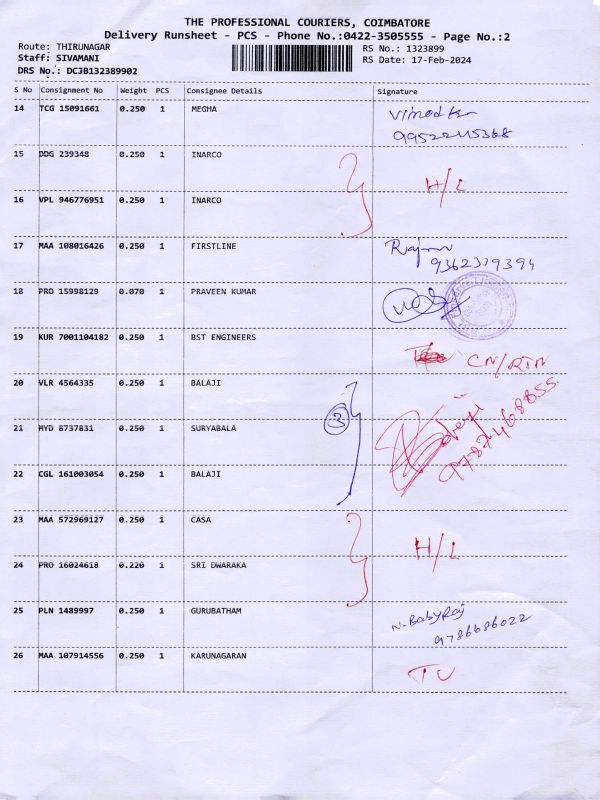 THE PROFESSIONAL COURIERS, COIMBATORE
Delivery Runsheet - PCS - Phone No.:0422-3505555 - Page No.:2
Route: THIRUNAGAR RS No.: 1323899
Staff: SIVAMANI RS Date: 17-Feb-2024
DRS No.: DCJB132389902
S No Consignment No Weight PCS Consignee Details Signature
14 TCG 15091661 0.250 1 MEGHA
15 DDG 239348 0.250 1 INARCO
H/L
16 VPL 946776951 0.250 1 INARCO
17 MAA 108016426 0.250 1 FIRSTLINE
9362379394
18 PRO 15998129 0.070 1 PRAVEEN KUMAR
19 KUR 7001104182 0.250 1 BST ENGINEERS
CN/RTN
20 VLR 4564335 0.250 1 BALAJI
3
21 MYD 8737831 0.250 1 SURYABALA
Balaji
22 CGL 161003054 0.250 1 BALAJI
23 MAA 572969127 0.250 1 CASA
H/L
24 PRO 16024618 0.220 1 SRI DWARAKA
25 PLN 1489997 0.250 1 GURUBATHAM
N. Baby Raj
9786686022
26 MAA 107914556 0.250 1 KARUNAGARAN